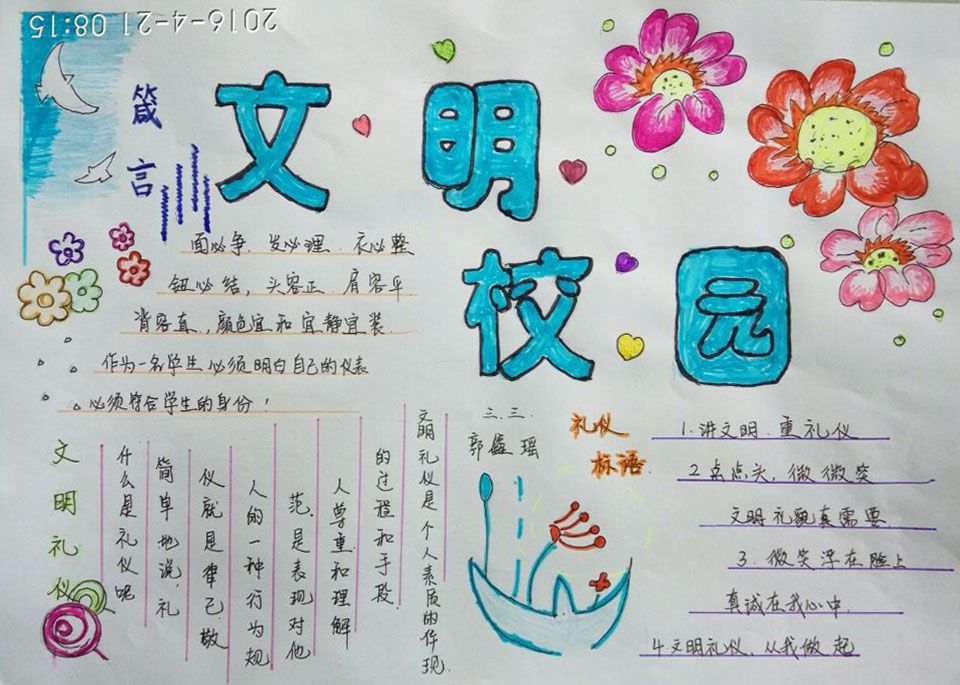 2016-4-21 08:15
箴言
文明
校园
面必争、发必理、衣必整
钮必结，头容正、肩容平
背容直，颜色宜和宜静宜装
作为一名学生必须明白自己的仪表
必须符合学生的身份！
文明礼仪
什么是礼仪呢
简单地说，礼
仪就是律己敬
人的一种行为规
范，是表现对他
人尊重和理解
的过程和手段。
文明礼仪是个人素质的体现.
三.三.
郭鑫瑶
礼仪
标语
1.讲文明、重礼仪
2.点点头，微微笑
文明礼貌真需要
3.微笑浮在脸上
真诚在我心中.
4文明礼仪、从我做起